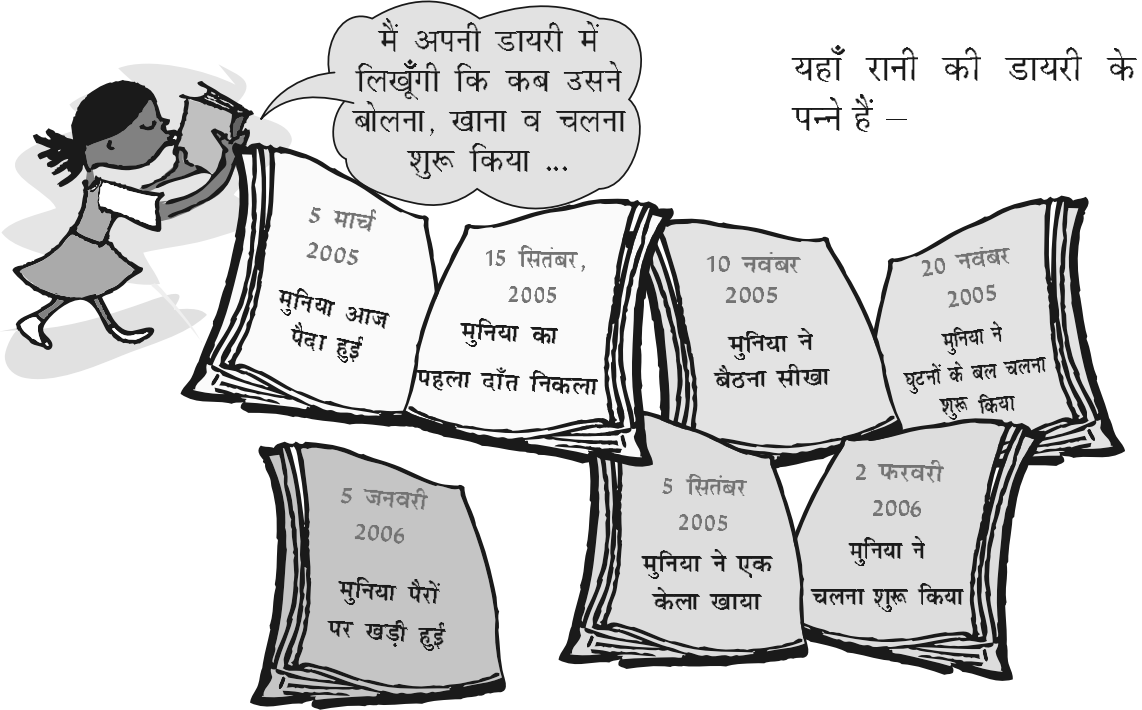 मैं अपनी डायरी में
लिखूँगी कि कब उसने
बोलना, खाना व चलना
शुरू किया ...
यहाँ रानी की डायरी के
पन्ने हैं –
5 मार्च
2005
मुनिया आज
पैदा हुई
15 सितंबर,
2005
मुनिया का
पहला दाँत निकला
10 नवंबर
2005
मुनिया ने
बैठना सीखा
20 नवंबर
2005
मुनिया ने
घुटनों के बल चलना
शुरू किया
5 जनवरी
2006
मुनिया पैरों
पर खड़ी हुई
5 सितंबर
2005
मुनिया ने एक
केला खाया
2 फरवरी
2006
मुनिया ने
चलना शुरू किया